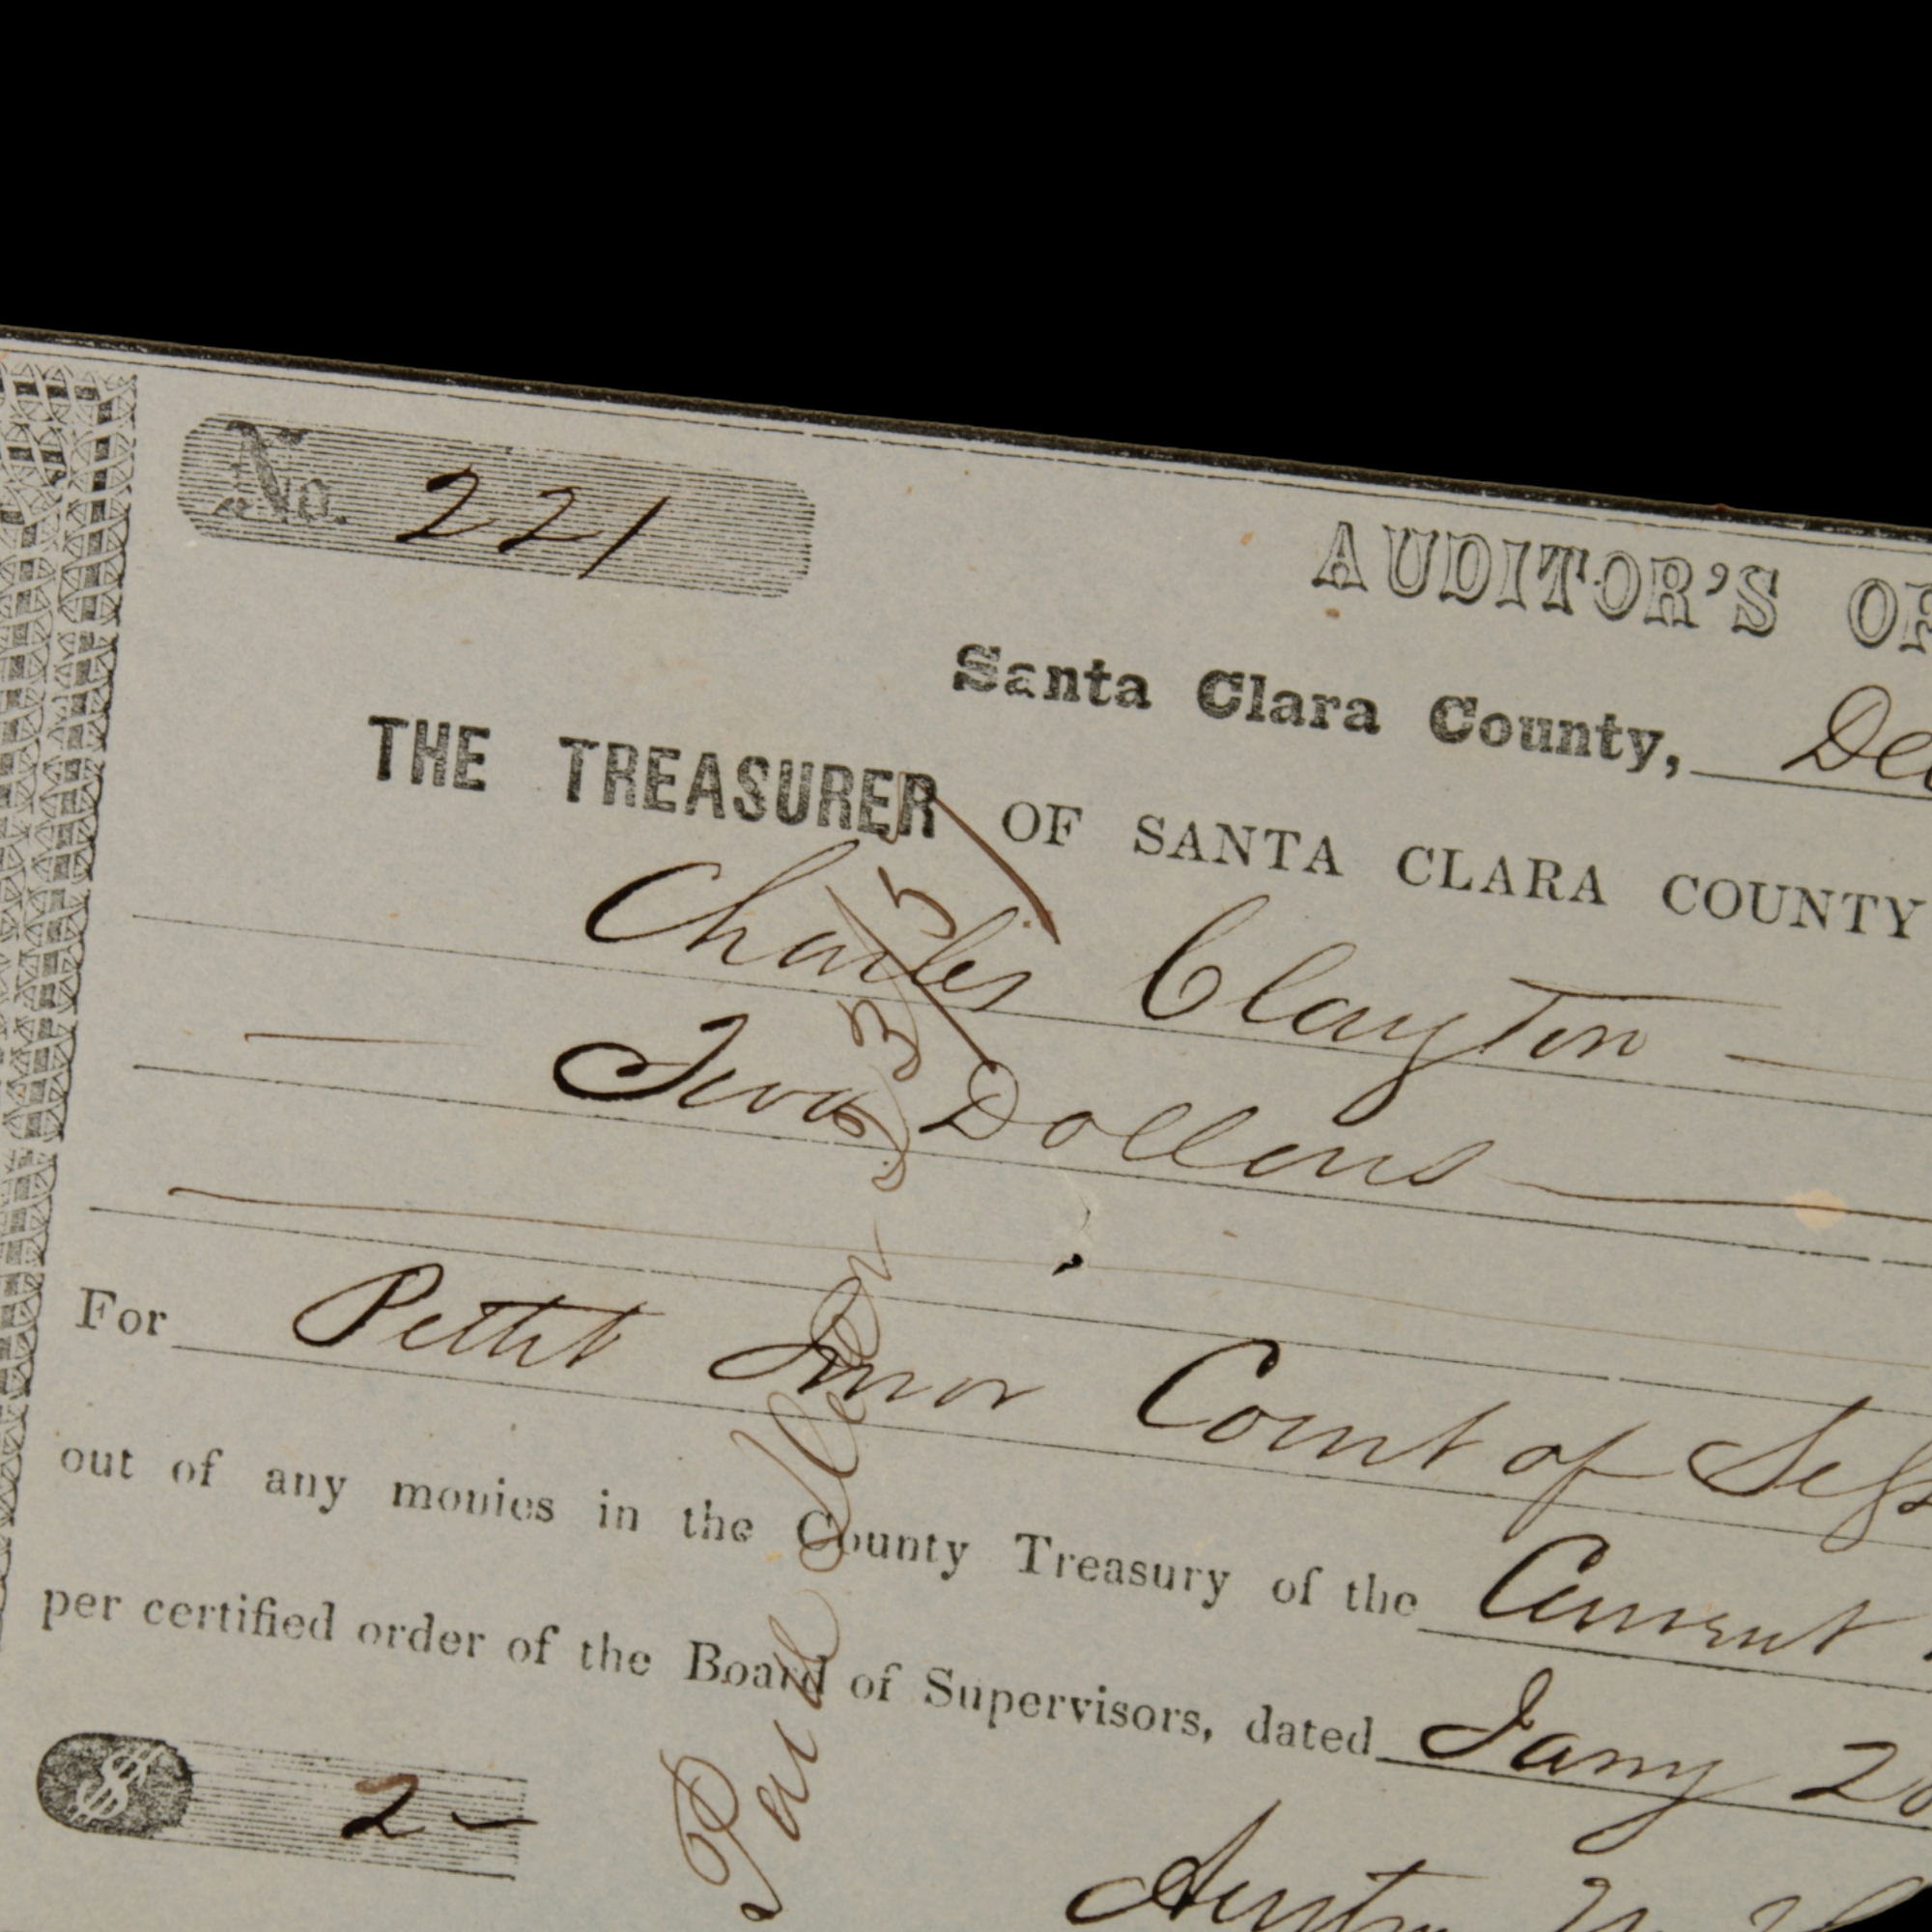 No. 221
AUDITOR'S OF
Santa Clara County, Dec
THE TREASURER OF SANTA CLARA COUNTY
Charles Clayton
Two Dollars
For Pettit Juror Court of Sess
out of any monies in the County Treasury of the Current
per certified order of the Board of Supervisors, dated Jany 20
$ 2